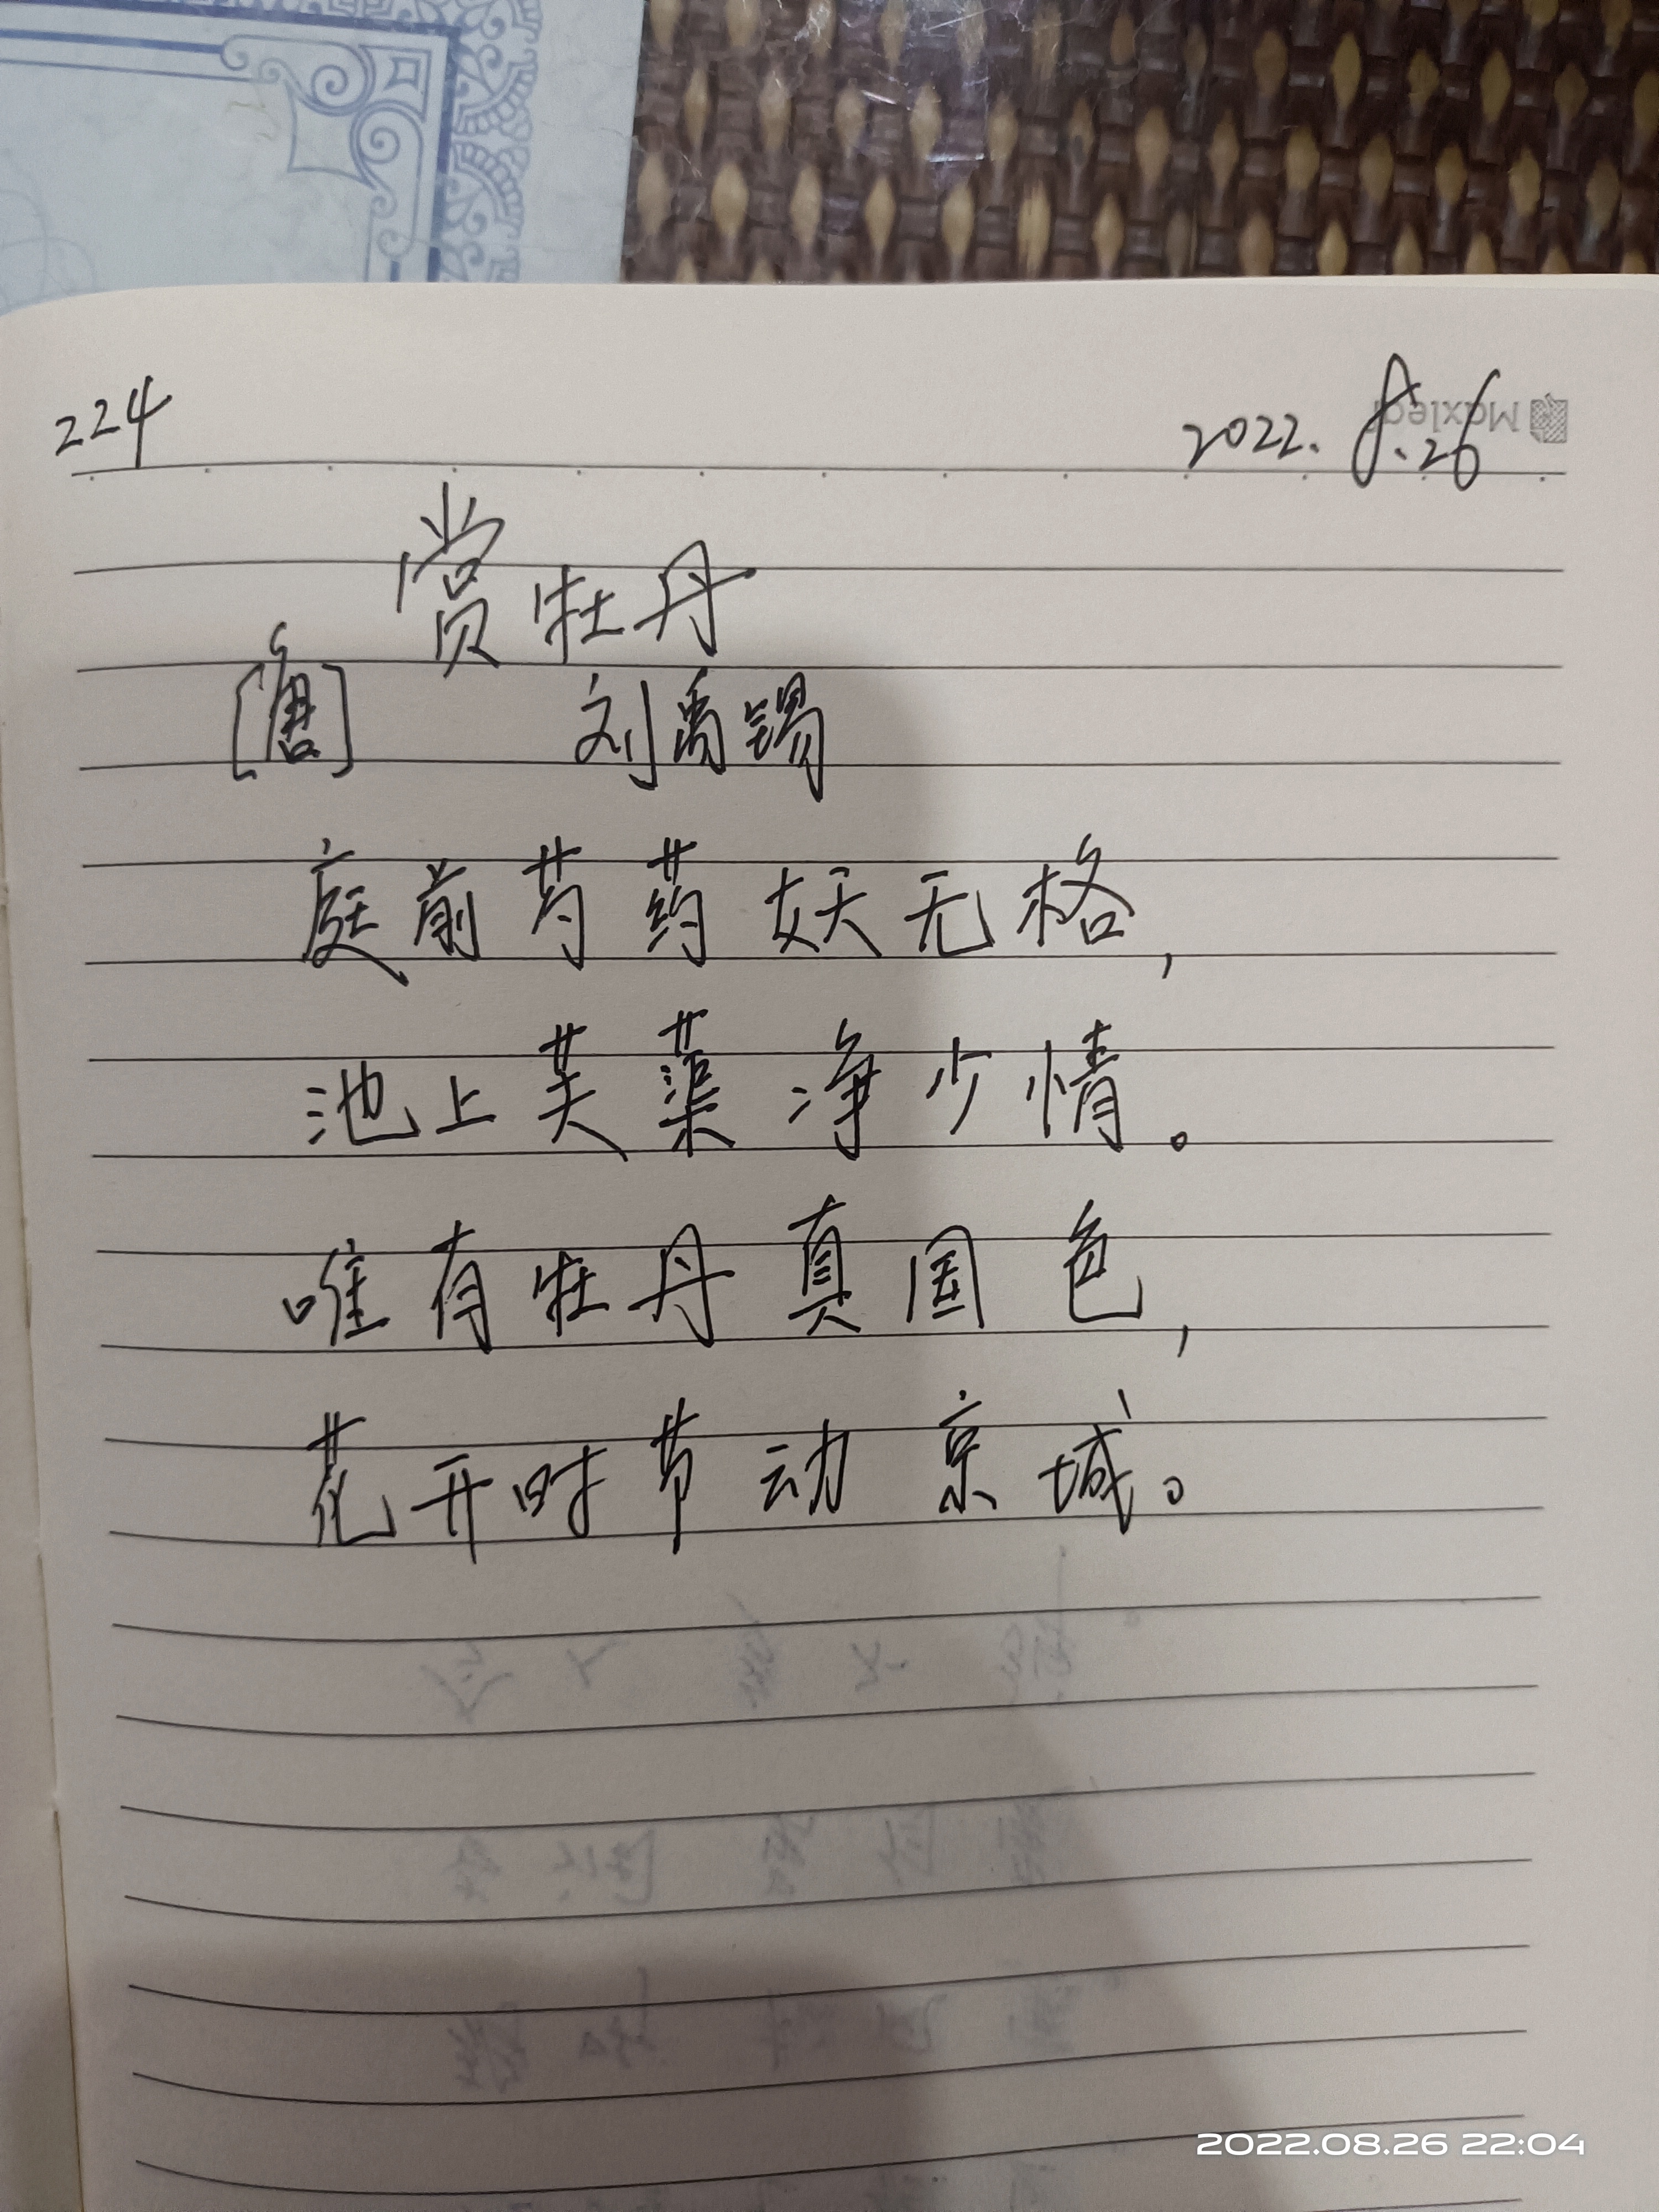 224 2022.8.26
Maxleaf
赏牡丹
[唐] 刘禹锡
庭前芍药妖无格,
池上芙蕖净少情。
唯有牡丹真国色,
花开时节动京城。
2022.08.26 22:04